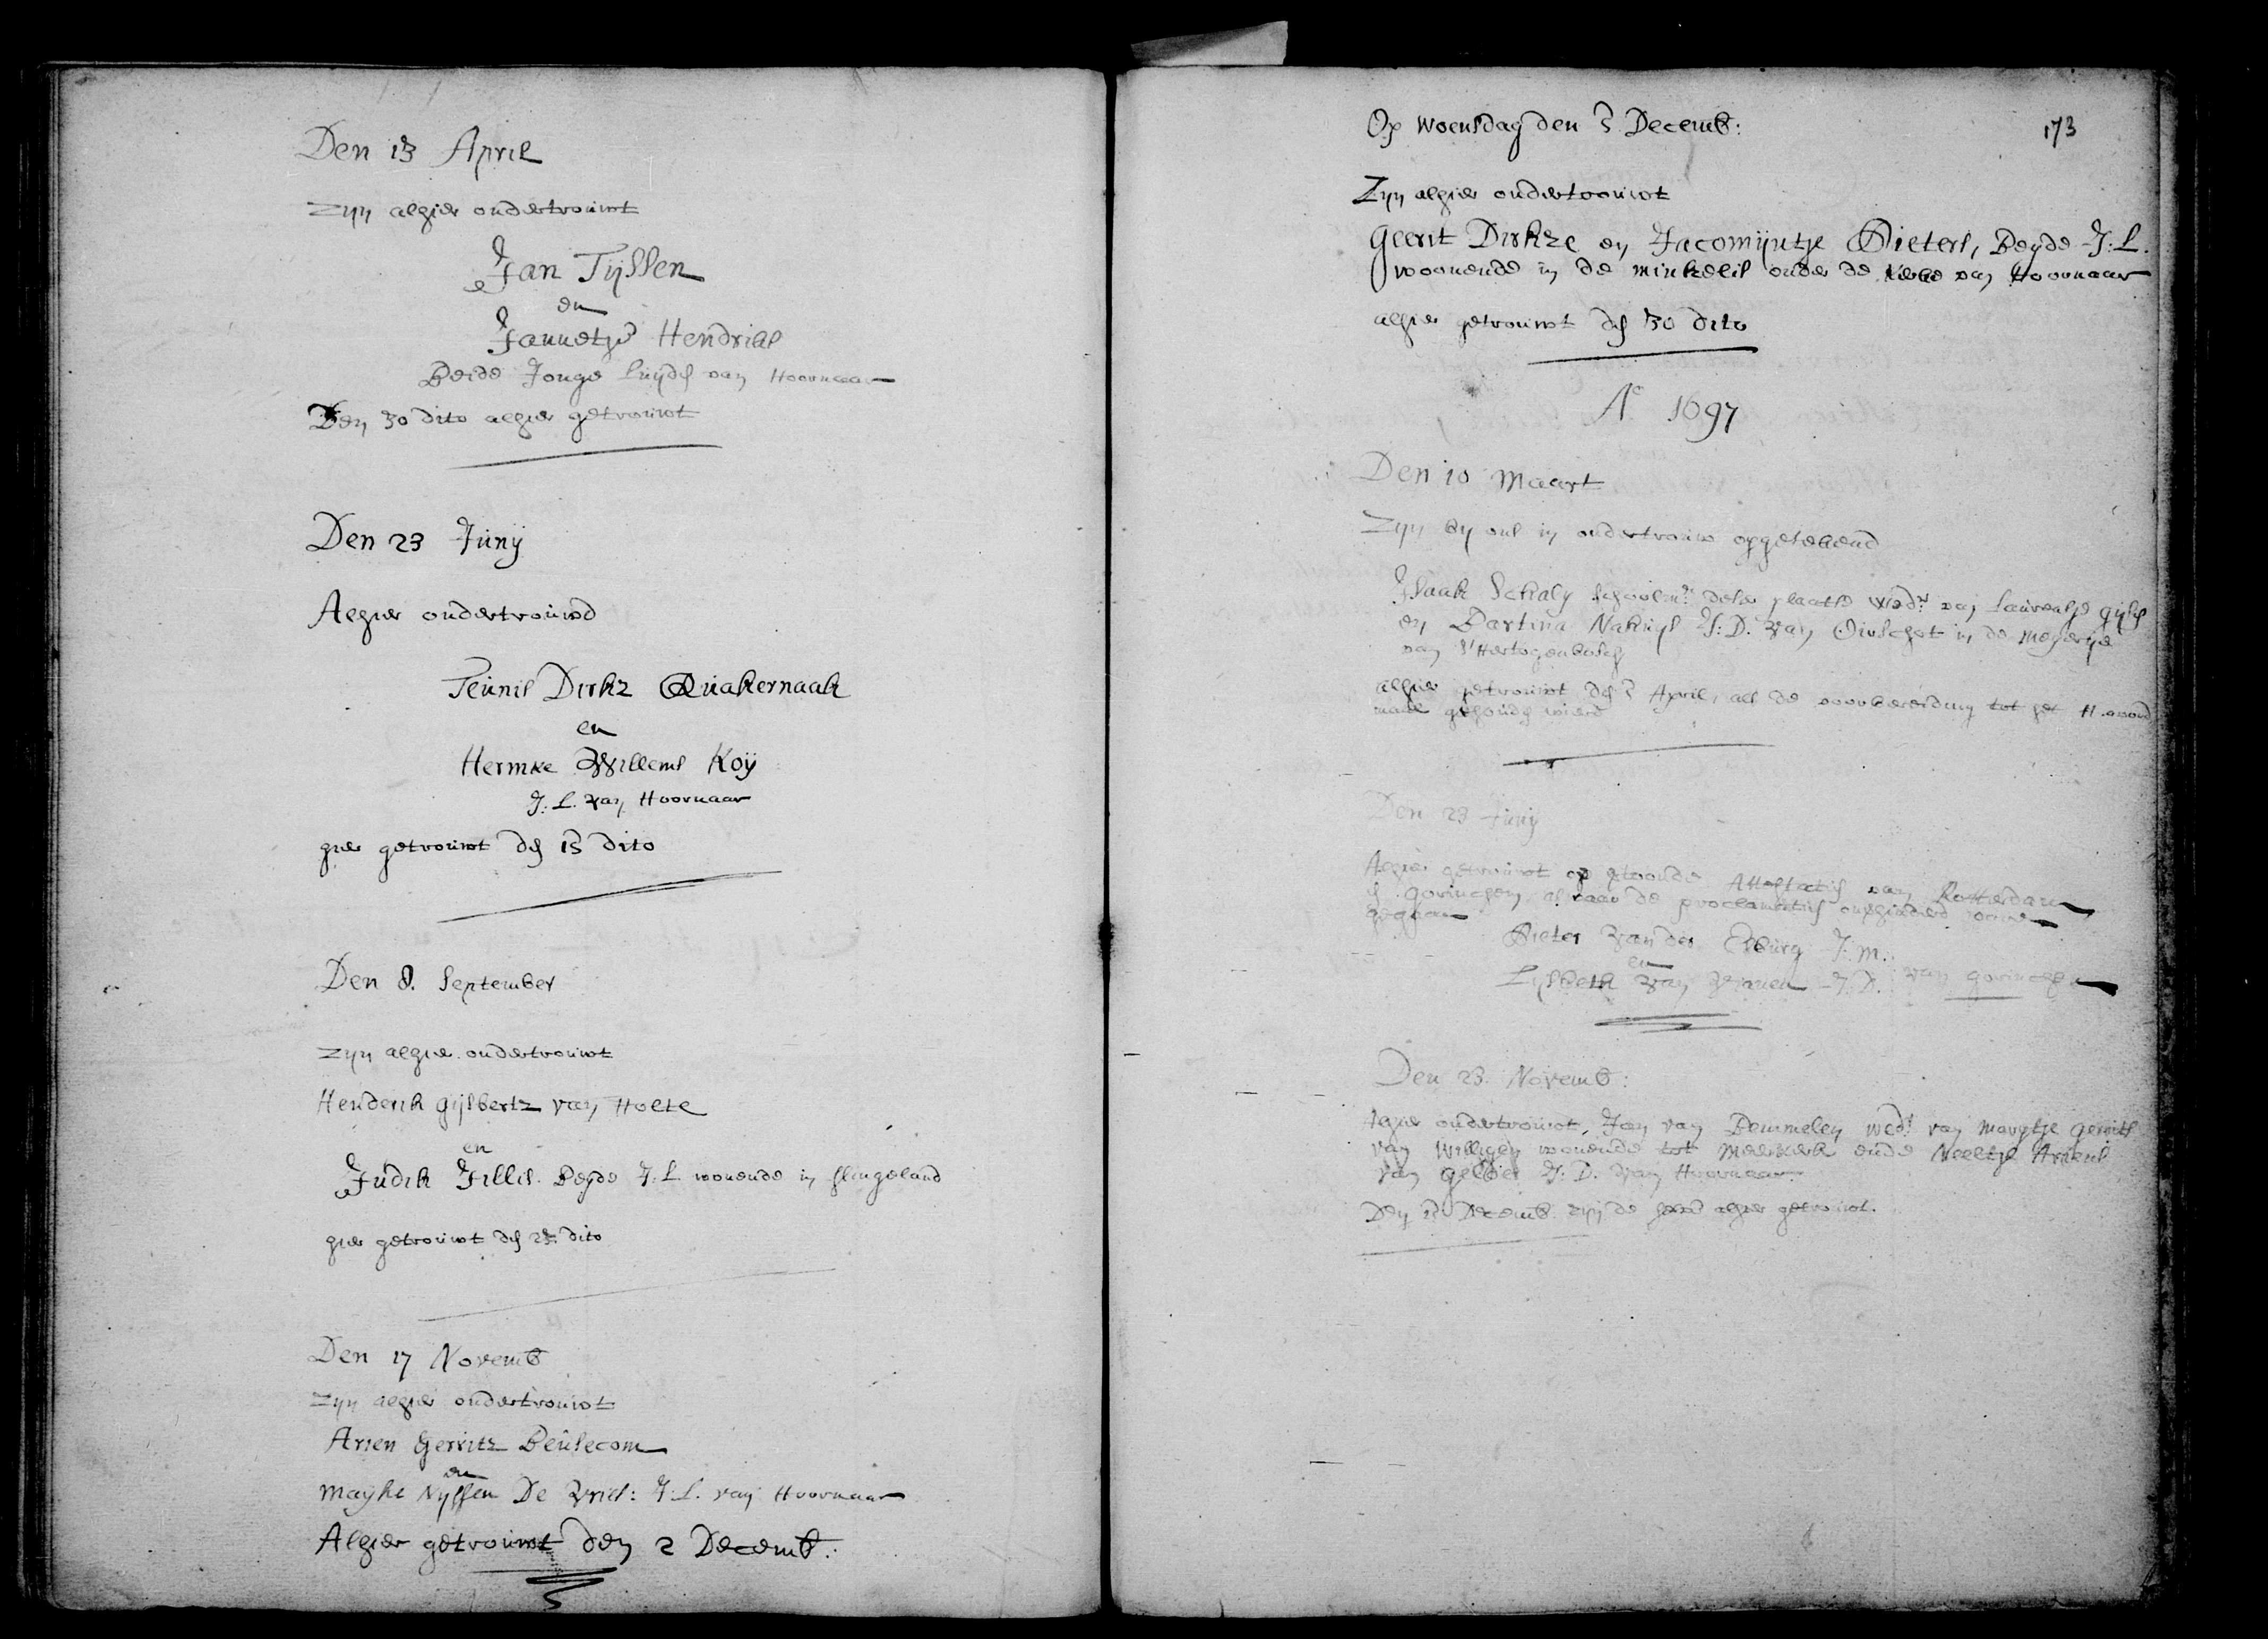 Den 13 April
Zijn alhier ondertrouwt
Jan Tijssen
en
Jannetje Hendriks
Beide Jonge Luijden van Hoornaar
Den 30 dito alhier getrouwt
Den 23 Junij
Alhier ondertrouwd
Teunis Dirkz Quakernaak
en
Hermke Willems Koij
J: L. van Hoornaar
hier getrouwt den 15 dito
Den 8. September
Zijn alhier ondertrouwt
Henderik Gijsbertz van Holte
en
Judik Jillis. Beyde J: L. wonende in slingeland
hier getrouwt den dito
Den 17 Novemb
Zijn alhier ondertrouwt
Arien Gerritz Beusecom
en
Mayke Nyssen De Vries: J: L. van Hoornaar
Alhier getrouwt den 2 Decemb:
Op woensdag den 5 Decemb: 173
Zijn alhier ondertrouwt
Geerit Dirkze en Jacomijntje Pieters, Beyde J: L.
woonende in de minkelis onder de van Hoornaar
alhier getrouwt den 30 dito
Ao 1697
Den 10 Maart
Zijn by ons in ondertrouw opgetekend
Isaak Schaly schoolmr. deser plaatse wedr. van Laurensje Gijsen
en Bartina J: D. van Oirschot in de Meyerije
van 's Hertogenbosch
alhier getrouwt den 3 April, als de voorbereiding tot het H. avond
maal gehouden wierd
Den 23 Junij
Alhier getrouwt op getoonde Attestatien van Rotterdam
en Gorinchem, alwaar de proclamatien onverhinderd waren
gegaan
Pieter van der Elburg J: M.
en
Lijsbeth van Vianen J: D. van Gorinchem
Den 23. Novemb:
Alhier ondertrouwt, Jan van Bemmelen wedr. van Marygtje Gerrits
van Willigen wonende tot Meerkerk ende Neeltje Ariens
van Gelder J: D. van Hoornaar
Den Decemb. zijn de alhier getrouwt.